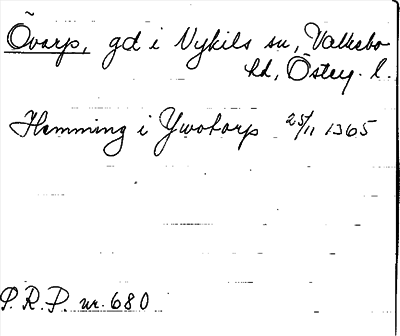 Övarp, gd i Nykils sn, Valkebo
hd, Östeg. l.
Hemming i Ywotorp 25/11 1365
P.R.P. nr. 680